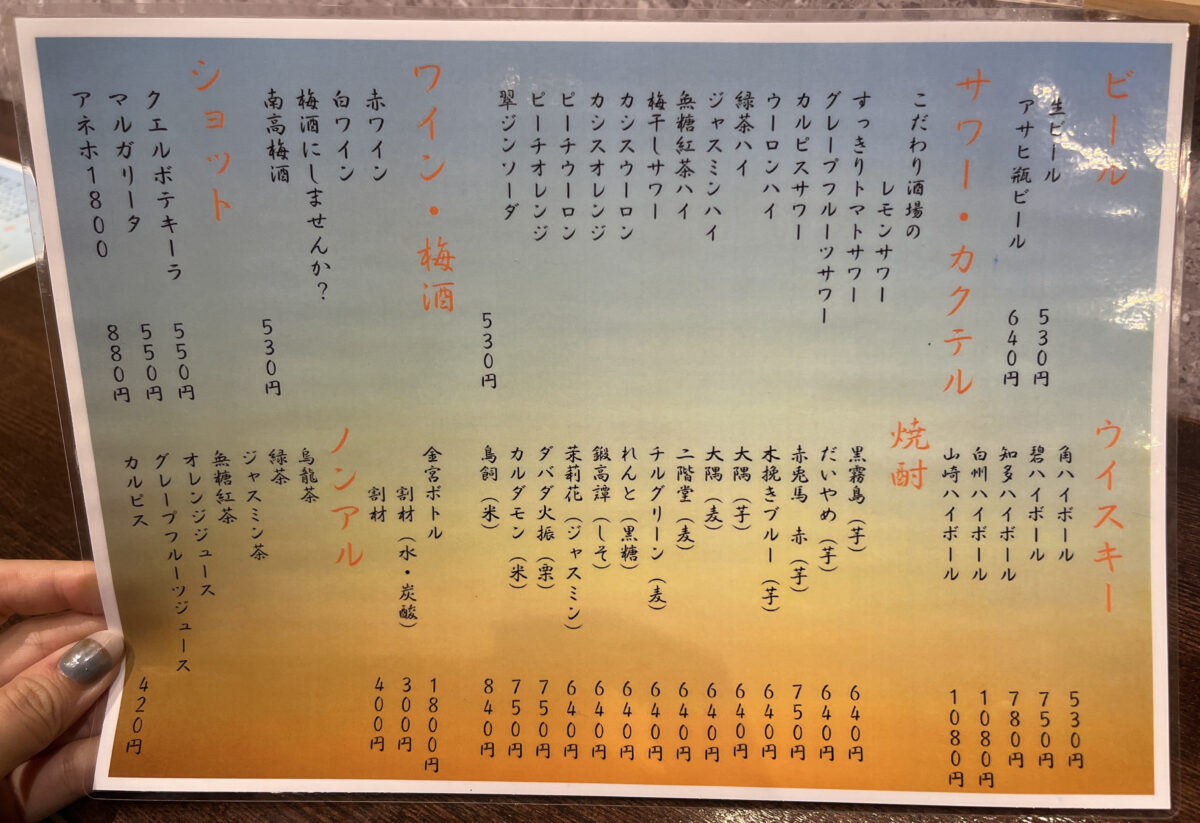 ビール
生ビール 530円
アサヒ瓶ビール 640円
サワー・カクテル
こだわり酒場の
レモンサワー
すっきりトマトサワー
グレープフルーツサワー
カルピスサワー
ウーロンハイ
緑茶ハイ
ジャスミンハイ
無糖紅茶ハイ
梅干しサワー
カシスウーロン
カシスオレンジ
ピーチウーロン
ピーチオレンジ
翠ジンソーダ 530円
ワイン・梅酒
赤ワイン
白ワイン
梅酒にしませんか?
南高梅酒 530円
ショット
クエルボテキーラ 550円
マルガリータ 550円
アネホ1800 880円
ウイスキー
角ハイボール 530円
碧ハイボール 750円
知多ハイボール 780円
白州ハイボール 1080円
山崎ハイボール 1080円
焼酎
黒霧島(芋) 640円
だいやめ(芋) 640円
赤兎馬 赤(芋) 750円
木挽きブルー(芋) 640円
大隅(芋) 640円
大隅(麦) 640円
二階堂(麦) 640円
チルグリーン(麦) 640円
れんと(黒糖) 640円
鍛高譚(しそ) 640円
茉莉花(ジャスミン) 640円
ダバダ火振(栗) 750円
カルダモン(米) 750円
鳥飼(米) 840円
金宮ボトル 1800円
割材(水・炭酸) 300円
割材 400円
ノンアル
烏龍茶
緑茶
ジャスミン茶
無糖紅茶
オレンジジュース
グレープフルーツジュース
カルピス 420円